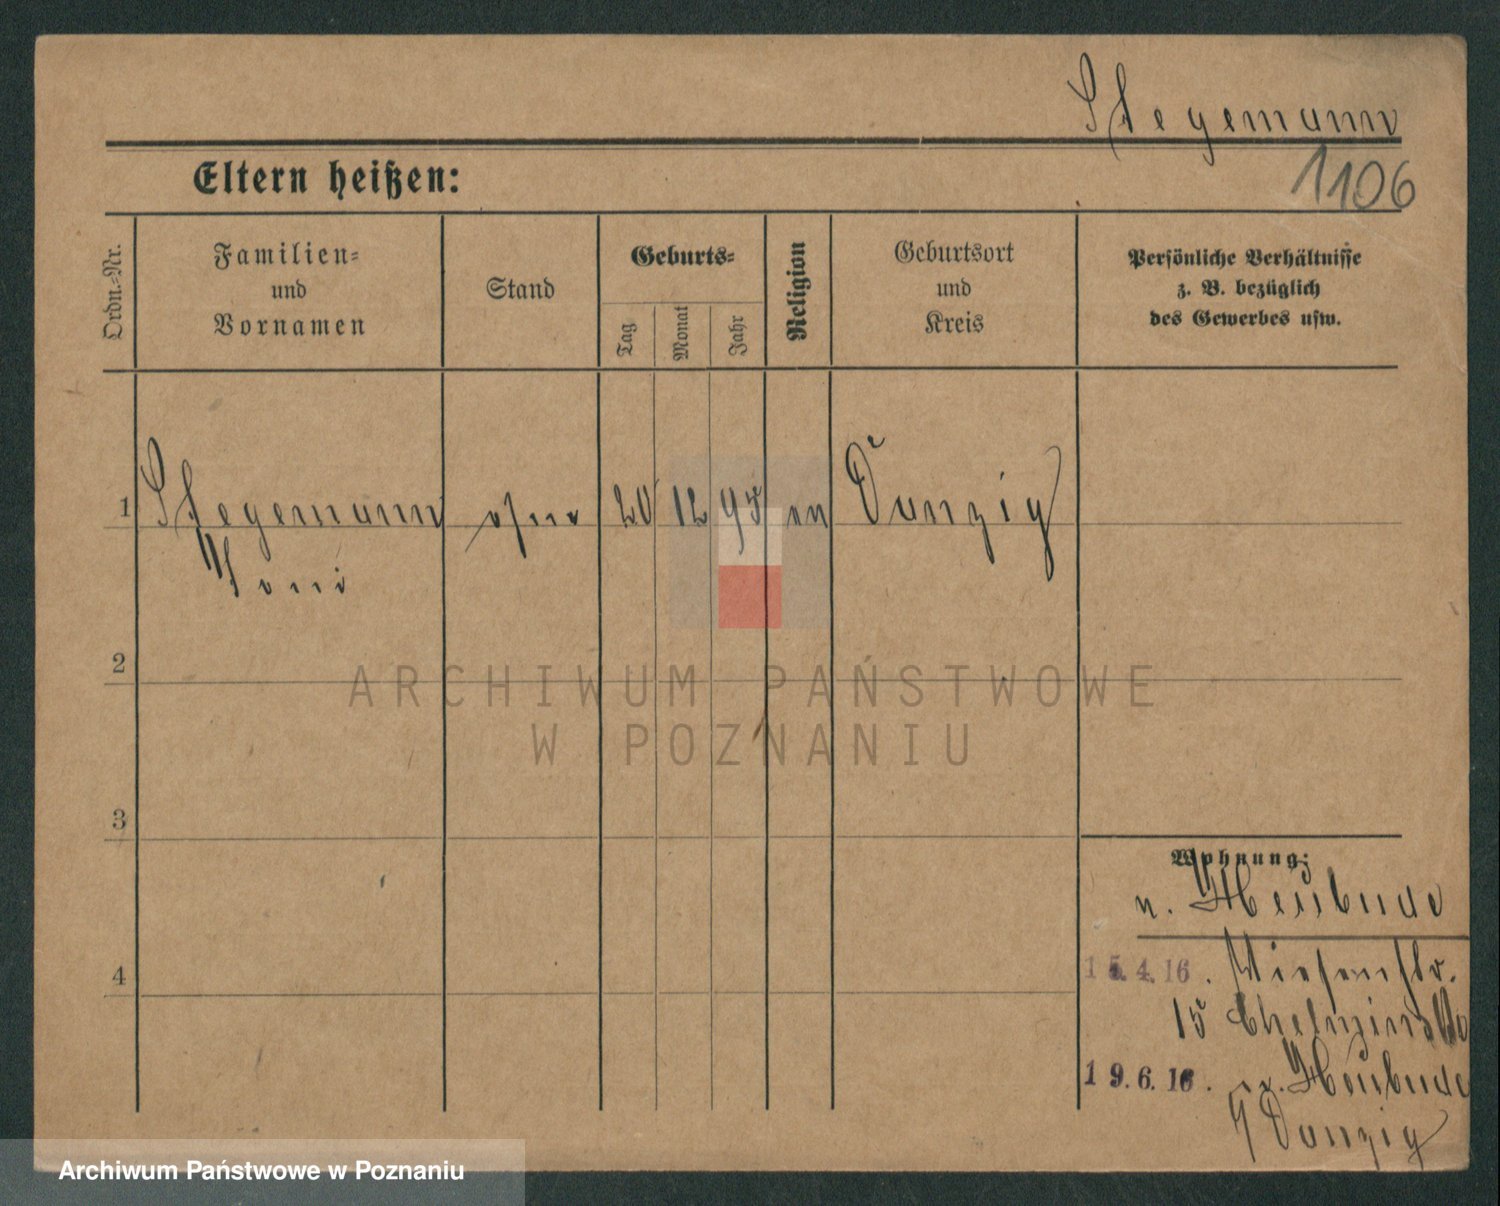 Stegemann
1106
Eltern heißen:
Ordn.-Nr.
Familien-
und
Vornamen
Stand
Geburts-
Tag
Monat
Jahr
Religion
Geburtsort
und
Kreis
Persönliche Verhältnisse
z. B. bezüglich
des Gewerbes usw.
1 Stegemann ohne 20 12 95 ev Danzig
Toni
2
3
4
ARCHIWUM PAŃSTWOWE
W POZNANIU
Wohnung:
n. Heubude
15.4.16. Wiesenstr.
15
19.6.16. n. Heubude
Danzig
Archiwum Państwowe w Poznaniu